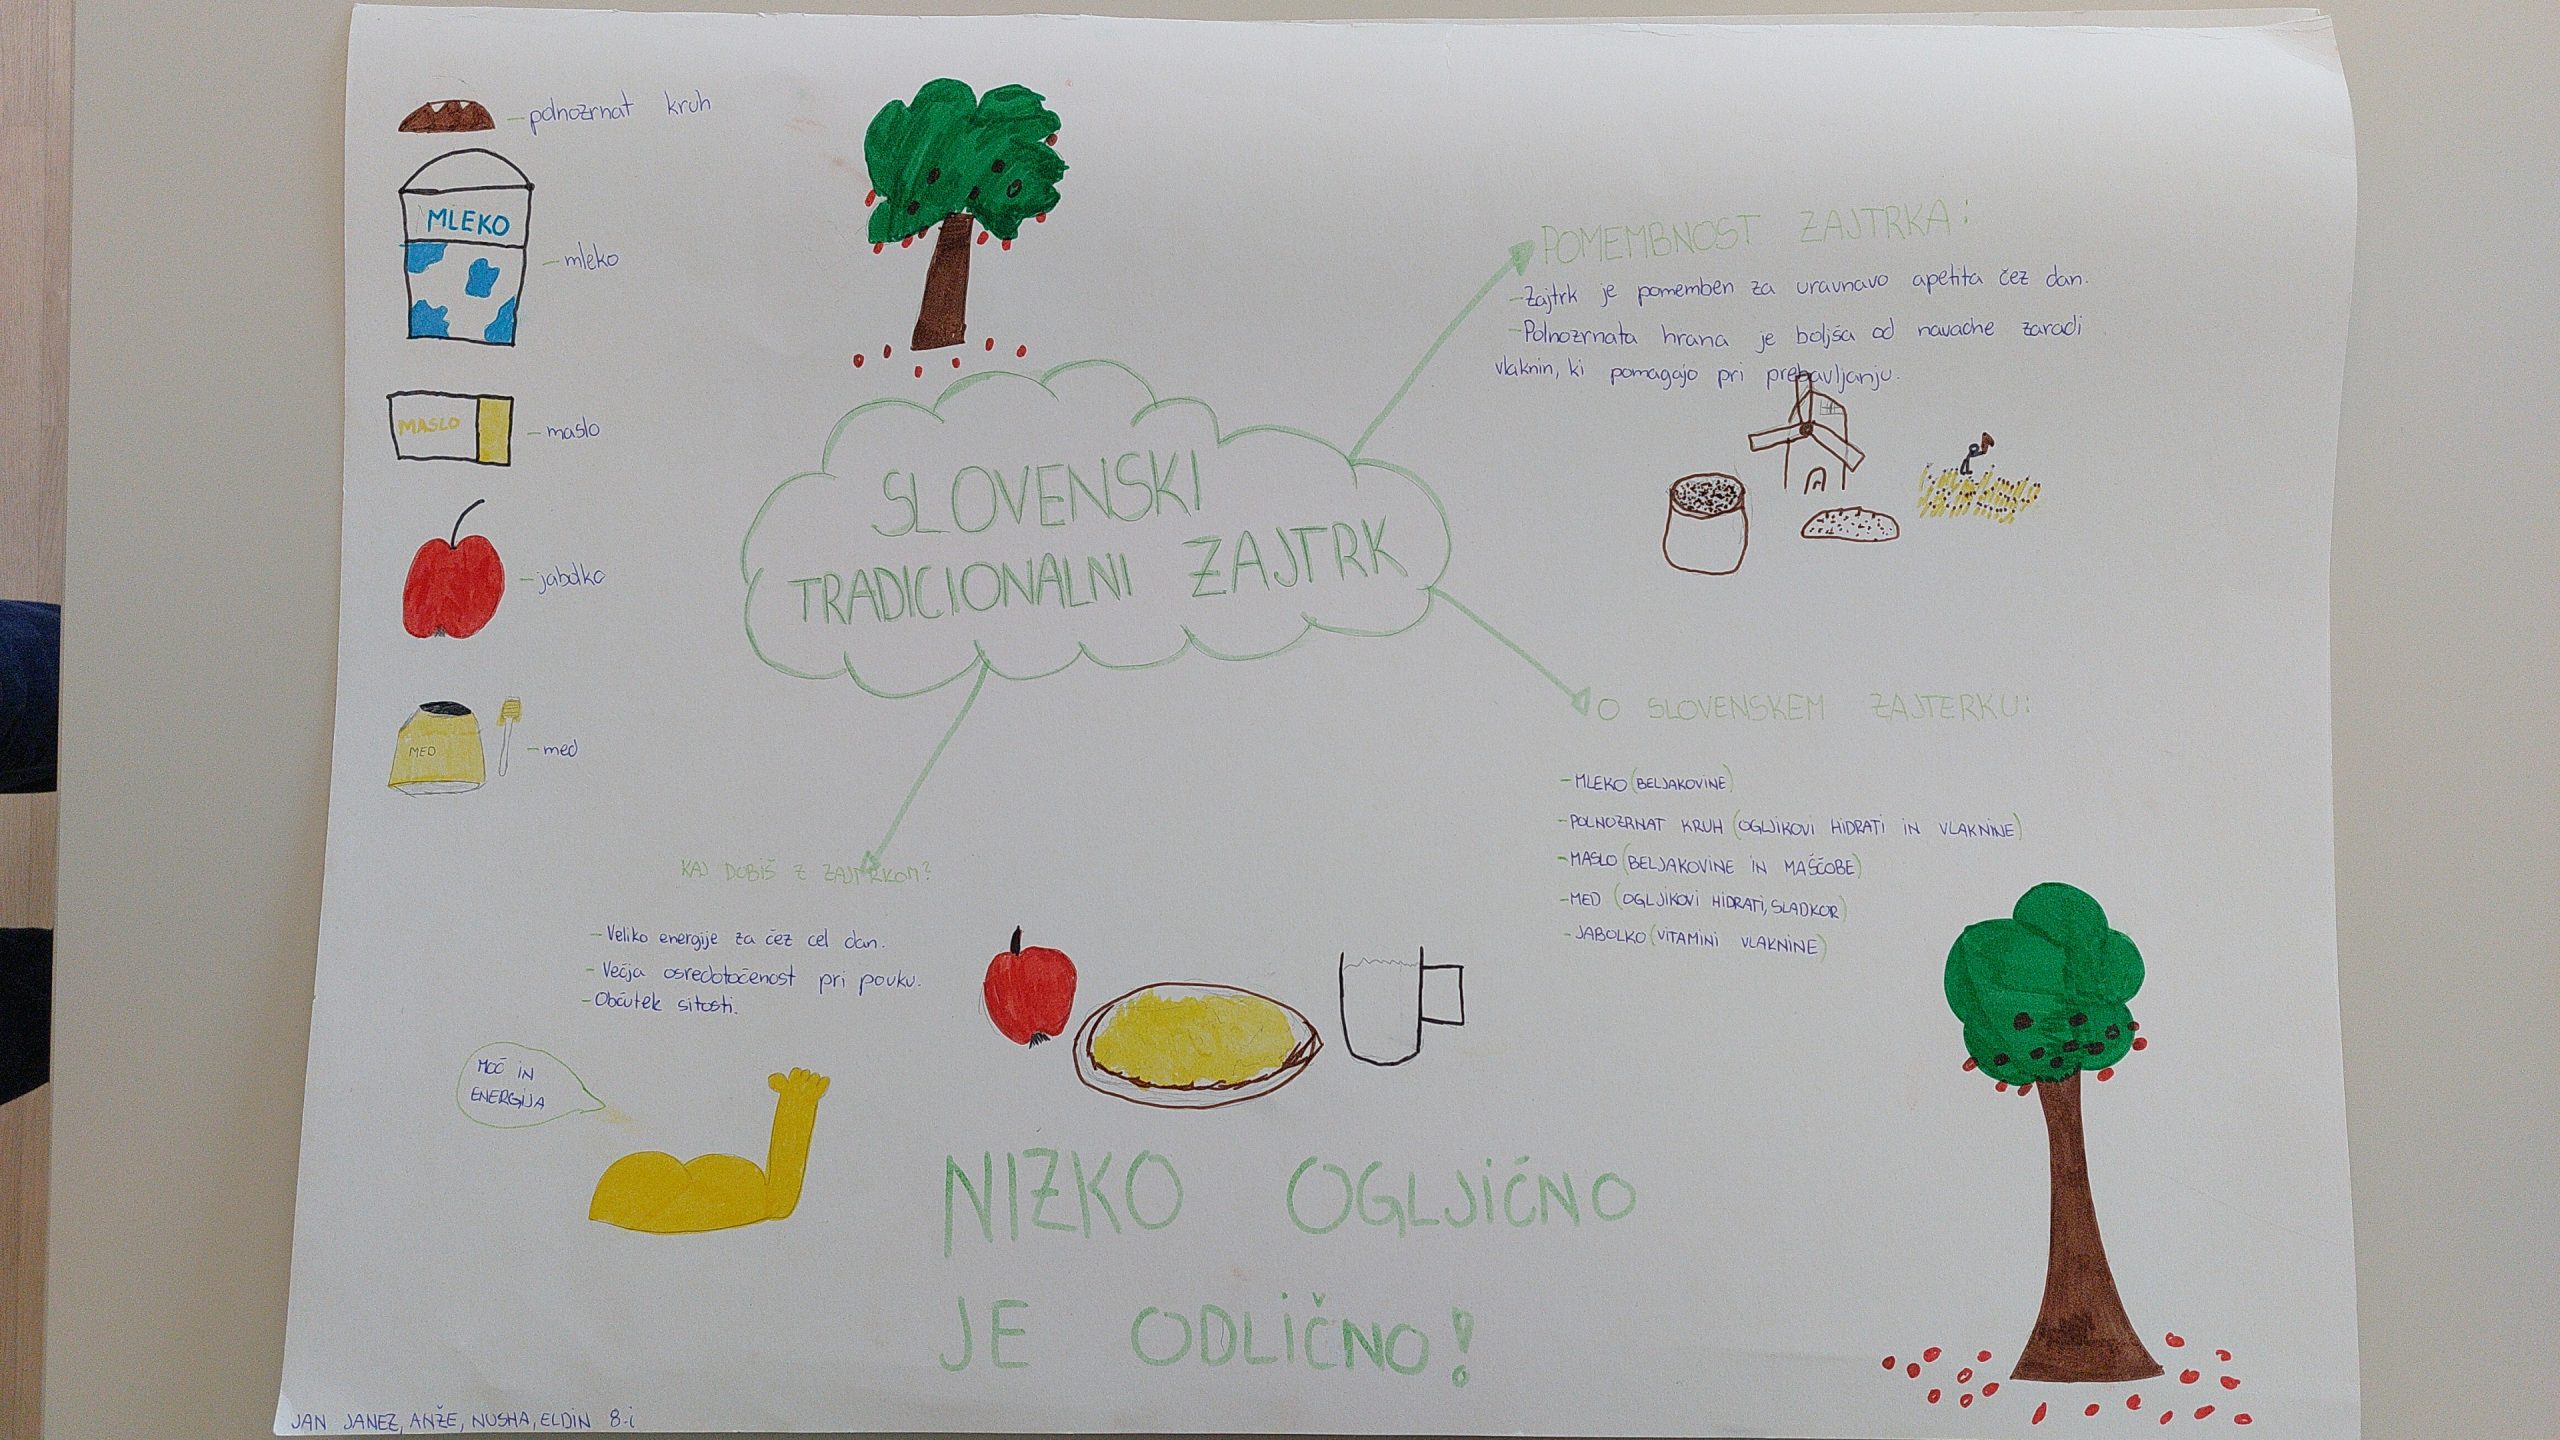 - polnozrnat kruh
MLEKO
- mleko
MASLO
- maslo
- jabolko
MED
- med
SLOVENSKI
TRADICIONALNI ZAJTRK
POMEMBNOST ZAJTRKA:
- Zajtrk je pomemben za uravnavo apetita čez dan.
- Polnozrnata hrana je boljša od navadne zaradi
vlaknin, ki pomagajo pri prebavljanju.
O SLOVENSKEM ZAJTERKU:
- MLEKO (BELJAKOVINE)
- POLNOZRNAT KRUH (OGLJIKOVI HIDRATI IN VLAKNINE)
- MASLO (BELJAKOVINE IN MAŠČOBE)
- MED (OGLJIKOVI HIDRATI, SLADKOR)
- JABOLKO (VITAMINI VLAKNINE)
KAJ DOBIŠ Z ZAJTRKOM?
- Veliko energije za čez cel dan.
- Večja osredotočenost pri pouku.
- Občutek sitosti.
MOČ IN
ENERGIJA
NIZKO OGLJIČNO
JE ODLIČNO!
JAN JANEZ, ANŽE, NUSHA, ELDIN 8.i